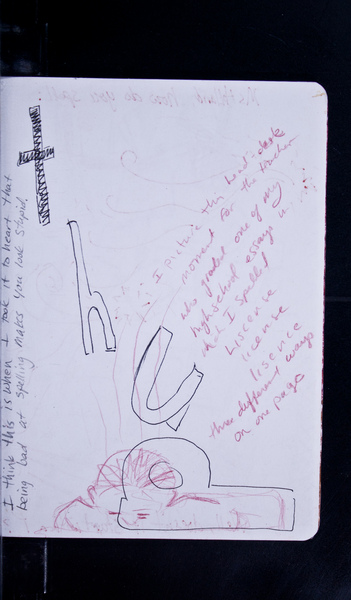 I think this is when I took it to heart that
being bad at spelling makes you look stupid.
I picture this head-desk
moment for the teacher
who graded one of my
highschool essays in
that I spelled
Liscense
license
lisence
three different ways
on on page